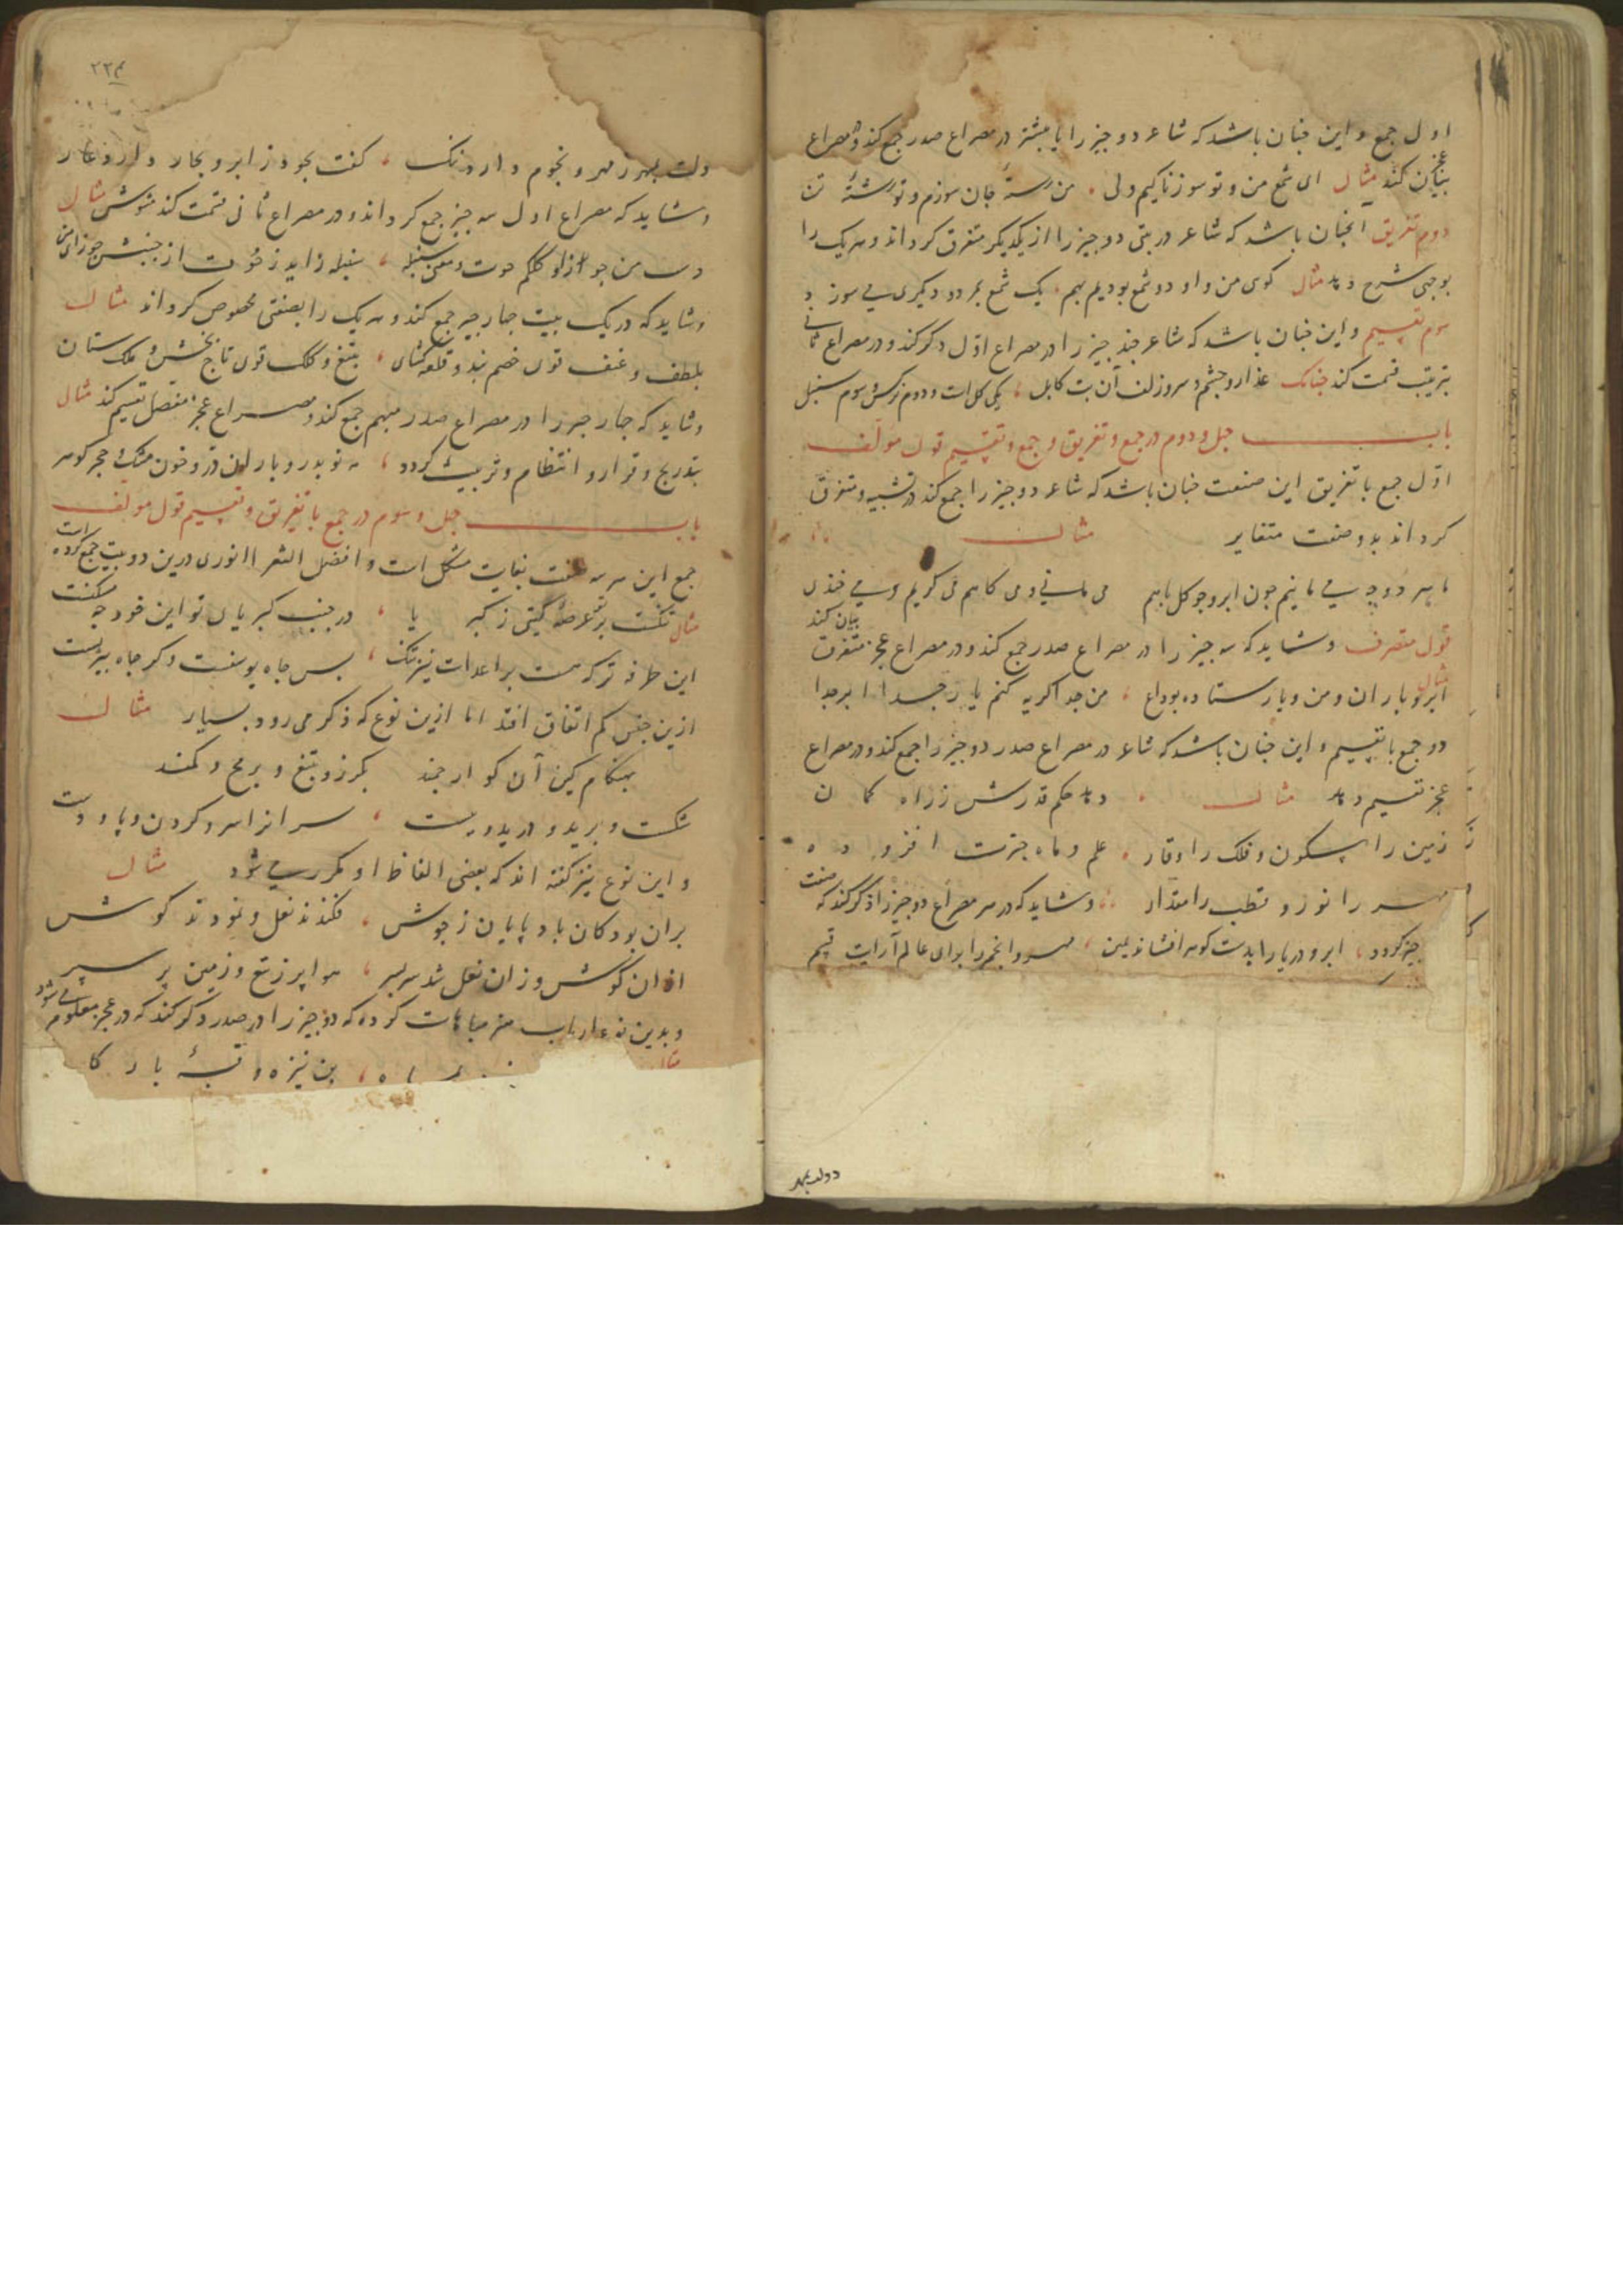 اول جمع و این جنان باشد که شاعر دو جیز را یا بیشتر در مصراع صدر جمع کند و در مصراع
عجز بیان کند مثال ای شمع من و تو سوزناکیم ولی من رستهٔ جان سوزم و تو رشتهٔ تن
دوم تفریق انجنان باشد که شاعر در بیتی دو جیز را از یکدیکر متفرق کرداند و هر یک را
بوجهی شرح دهد مثال کوی من و او دو شمع بودیم بهم یک شمع بمرد و دیکری می سوزد
سوم تقسیم و این جنان باشد که شاعر جند جیز را در مصراع اول ذکر کند و در مصراع ثانی
بترتیب قسمت کند جنانک عذار و جشم و سر زلف آن بت کابل یکی کل است و دوم نرکس و سوم سنبل
باب جهل و دوم در جمع و تفریق و جمع و تقسیم قول مولف
اول جمع با تفریق این صنعت جنان باشد که شاعر دو جیز را جمع کند در تشبیه و متفرق
کرداند بدو صفت متغایر مثال
ما هر دو می مانیم جون ابر و جو کل باهم می کریم و می خندی
قول متصرف و شاید که سه جیز را در مصراع صدر جمع کند و در مصراع عجز متفرق بیان کند
مثال ابر و باران و من و یار ستاده بوداع من جدا کریه کنم یار جدا ابر جدا
دو جمع با تقسیم و این جنان باشد که شاعر در مصراع صدر دو جیز را جمع کند و در مصراع
عجز تقسیم دهد مثال دهد حکم قدرش ز راه کمان
زمین را سکون و فلک را وقار علم و ماه جترت افزوده
مهر را نور و قطب را مقدار و شاید که در هر مصراع دو جیز را ذکر کند که صفت
جیز کردد ابر و دریا را بدست کوهر افشاند یمین مهر و انجم را برای عالم آرایت قسم
دولت بمهر
۲۲۳
ولت بمهر ز مهر و نجوم دارد ننک کفت بجود ز ابر و بحار دارد عار
و شاید که مصراع اول سه جیز جمع کرداند و در مصراع ثانی قسمت کند مشوش مثال
دست من جوزا و کلکم حوت و معنی سنبله سنبله زاید ز حوت از جنبش جوزای من
و شاید که در یک بیت جار جیز جمع کند و هر یک را بصفتی مخصوص کرداند مثال
بلطف و عنف توی خصم بند و قلعه کشای بتیغ و کلک توی تاج بخش و ملک ستان
و شاید که جار جیز را در مصراع صدر مبهم جمع کند و مصراع عجز مفصل تقسیم کند مثال
بتدریج و قرار و انتظام و تربیت کردد
باب جهل و سوم در جمع با تفریق و تقسیم قول مولف
جمع این هر سه صنعت بغایت مشکل است و افضل الشعرا انوری درین دو بیت جمع کرده است
مثال تنکست بر تو عرصهٔ کیتی ز کبریا در جنب کبریای تو این خود جه مسکنت
این طرفه تر که هست بر اعدات نیز تنک بس جاه یوسفست و کر جاه بیزنست
ازین جنس کم اتفاق افتد اما ازین نوع که ذکر می رود بسیار مثال
بهنکام کین آن کو ارجمند بکرز و بتیغ و برمح و کمند
شکست و برید و درید و ببست سران را سر و کردن و پا و دست
و این نوع نیز کفته اند که بعضی الفاظ او مکرر می شود مثال
بران بود کان باد پایان ز جوش فکندند نعل و نمودند کوش
از ان کوش وز ان نعل شد سر بسر هوا پر ز تیغ و زمین پر سپر
و بدین نوع ارباب هنر مباهات کرده که دو جیز را در صدر ذکر کند که در عجز معلوم می شود
مثال ماه بن نیزه و قبهٔ بارکا